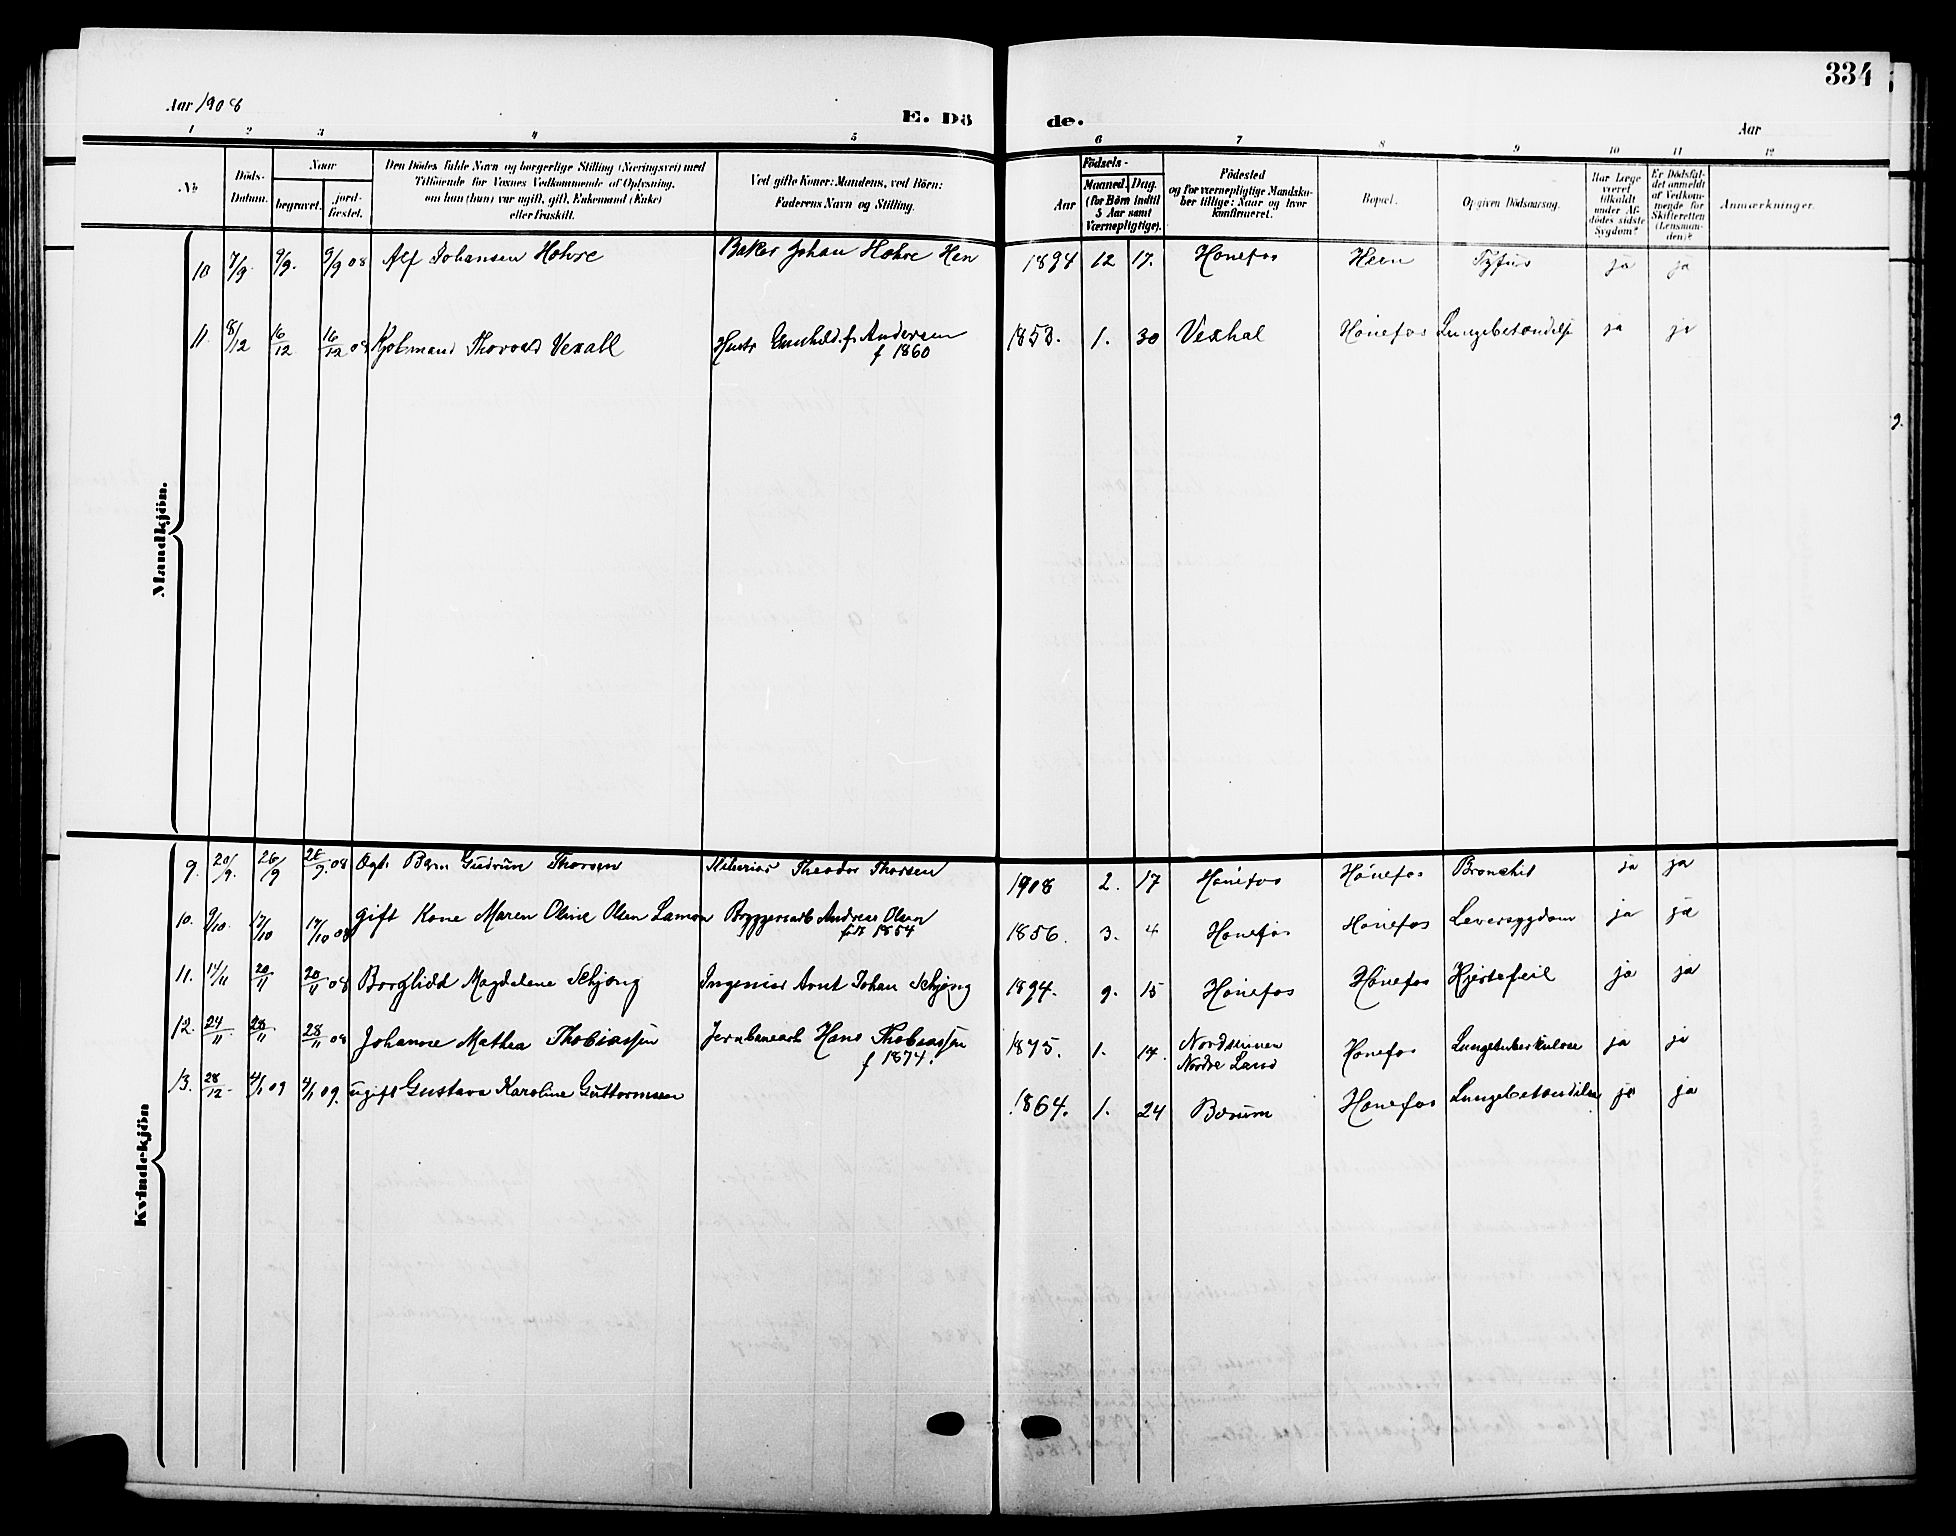 334
Aar 1908
E. Dö de.
Aar
1 2 3 4 5 6 7 8 9 10 11 12
No
Döds-
Datum.
Naar
begravet.
jord-
fæstet.
Den Dödes fulde Navn og borgerlige Stilling (Næringsvei) med
Tilföiende for Voxnes Vedkommende af Oplysning,
om han (hun) var ugift, gift, Enkemand (Enke)
eller fraskilt.
Ved gifte Koner: Mandens, ved Börn:
Faderens Navn og Stilling.
Födsels-
Aar
Maaned. Dag.
(for Börn indtil
5 Aar samt
Værnepligtige).
Födested
og for værnepligtige Mandska-
ber tillige: Naar og hvor
konfirmeret.
Bopæl.
Opgiven Dödsaarsag.
Har Læge
været
tilkaldt
under Af-
dödes sidste
Sygdom?
Er Dödsfal-
det anmeldt
af Vedkom-
mende for
Skifteretten
(Lensman-
den)?
Anmærkninger.
Mandkjön.
10 7/9 9/9. 9/9 08 Alf Johansen Hohre Baker Johan Hohre Hen 1894 12 17. Hönefos Heen Tyfus ja ja
11 8/12 16/12 16/12 08 Kjöbmand Thorvald Vexall Hustr Gunhild f. Andersen 1853. 1. 30 Vexhal Hönefos Lungebetændelse ja ja
f 1860
Kvindekjön
9. 20/9. 26/9 26/9. 08 Barn Gudrun Thorsen Theodor Thorsen 1908 2. 17 Hönefos Hönefos Bronchit ja ja
10. 9/10. 17/10 17/10 08 gift Kone Maren Oline Olsen Bryggeriarb Andreas Olsen 1856. 3. 4 Hönefos Hönefos Leversygdom ja ja
1854
11. 14/11 20/11 20/11 08 Borghild Magdalene Schjong Ingeniør Arnt Johan Schjong 1894. 9. 15 Hönefos Hönefos Hjertefeil ja ja
12. 24/11. 28/11 28/11 08 Johanne Mathea Thobiassen Jernbanearb Hans Thobiassen 1875. 1. 14. Nordre Land Hönefos Lungetuberkulose ja ja
f 1874.
13. 28/12. 4/1 09 4/1 09. ugift Gustava Karoline Guttormsen 1864. 1. 24 Bærum Hönefos Lungebetændelse ja ja